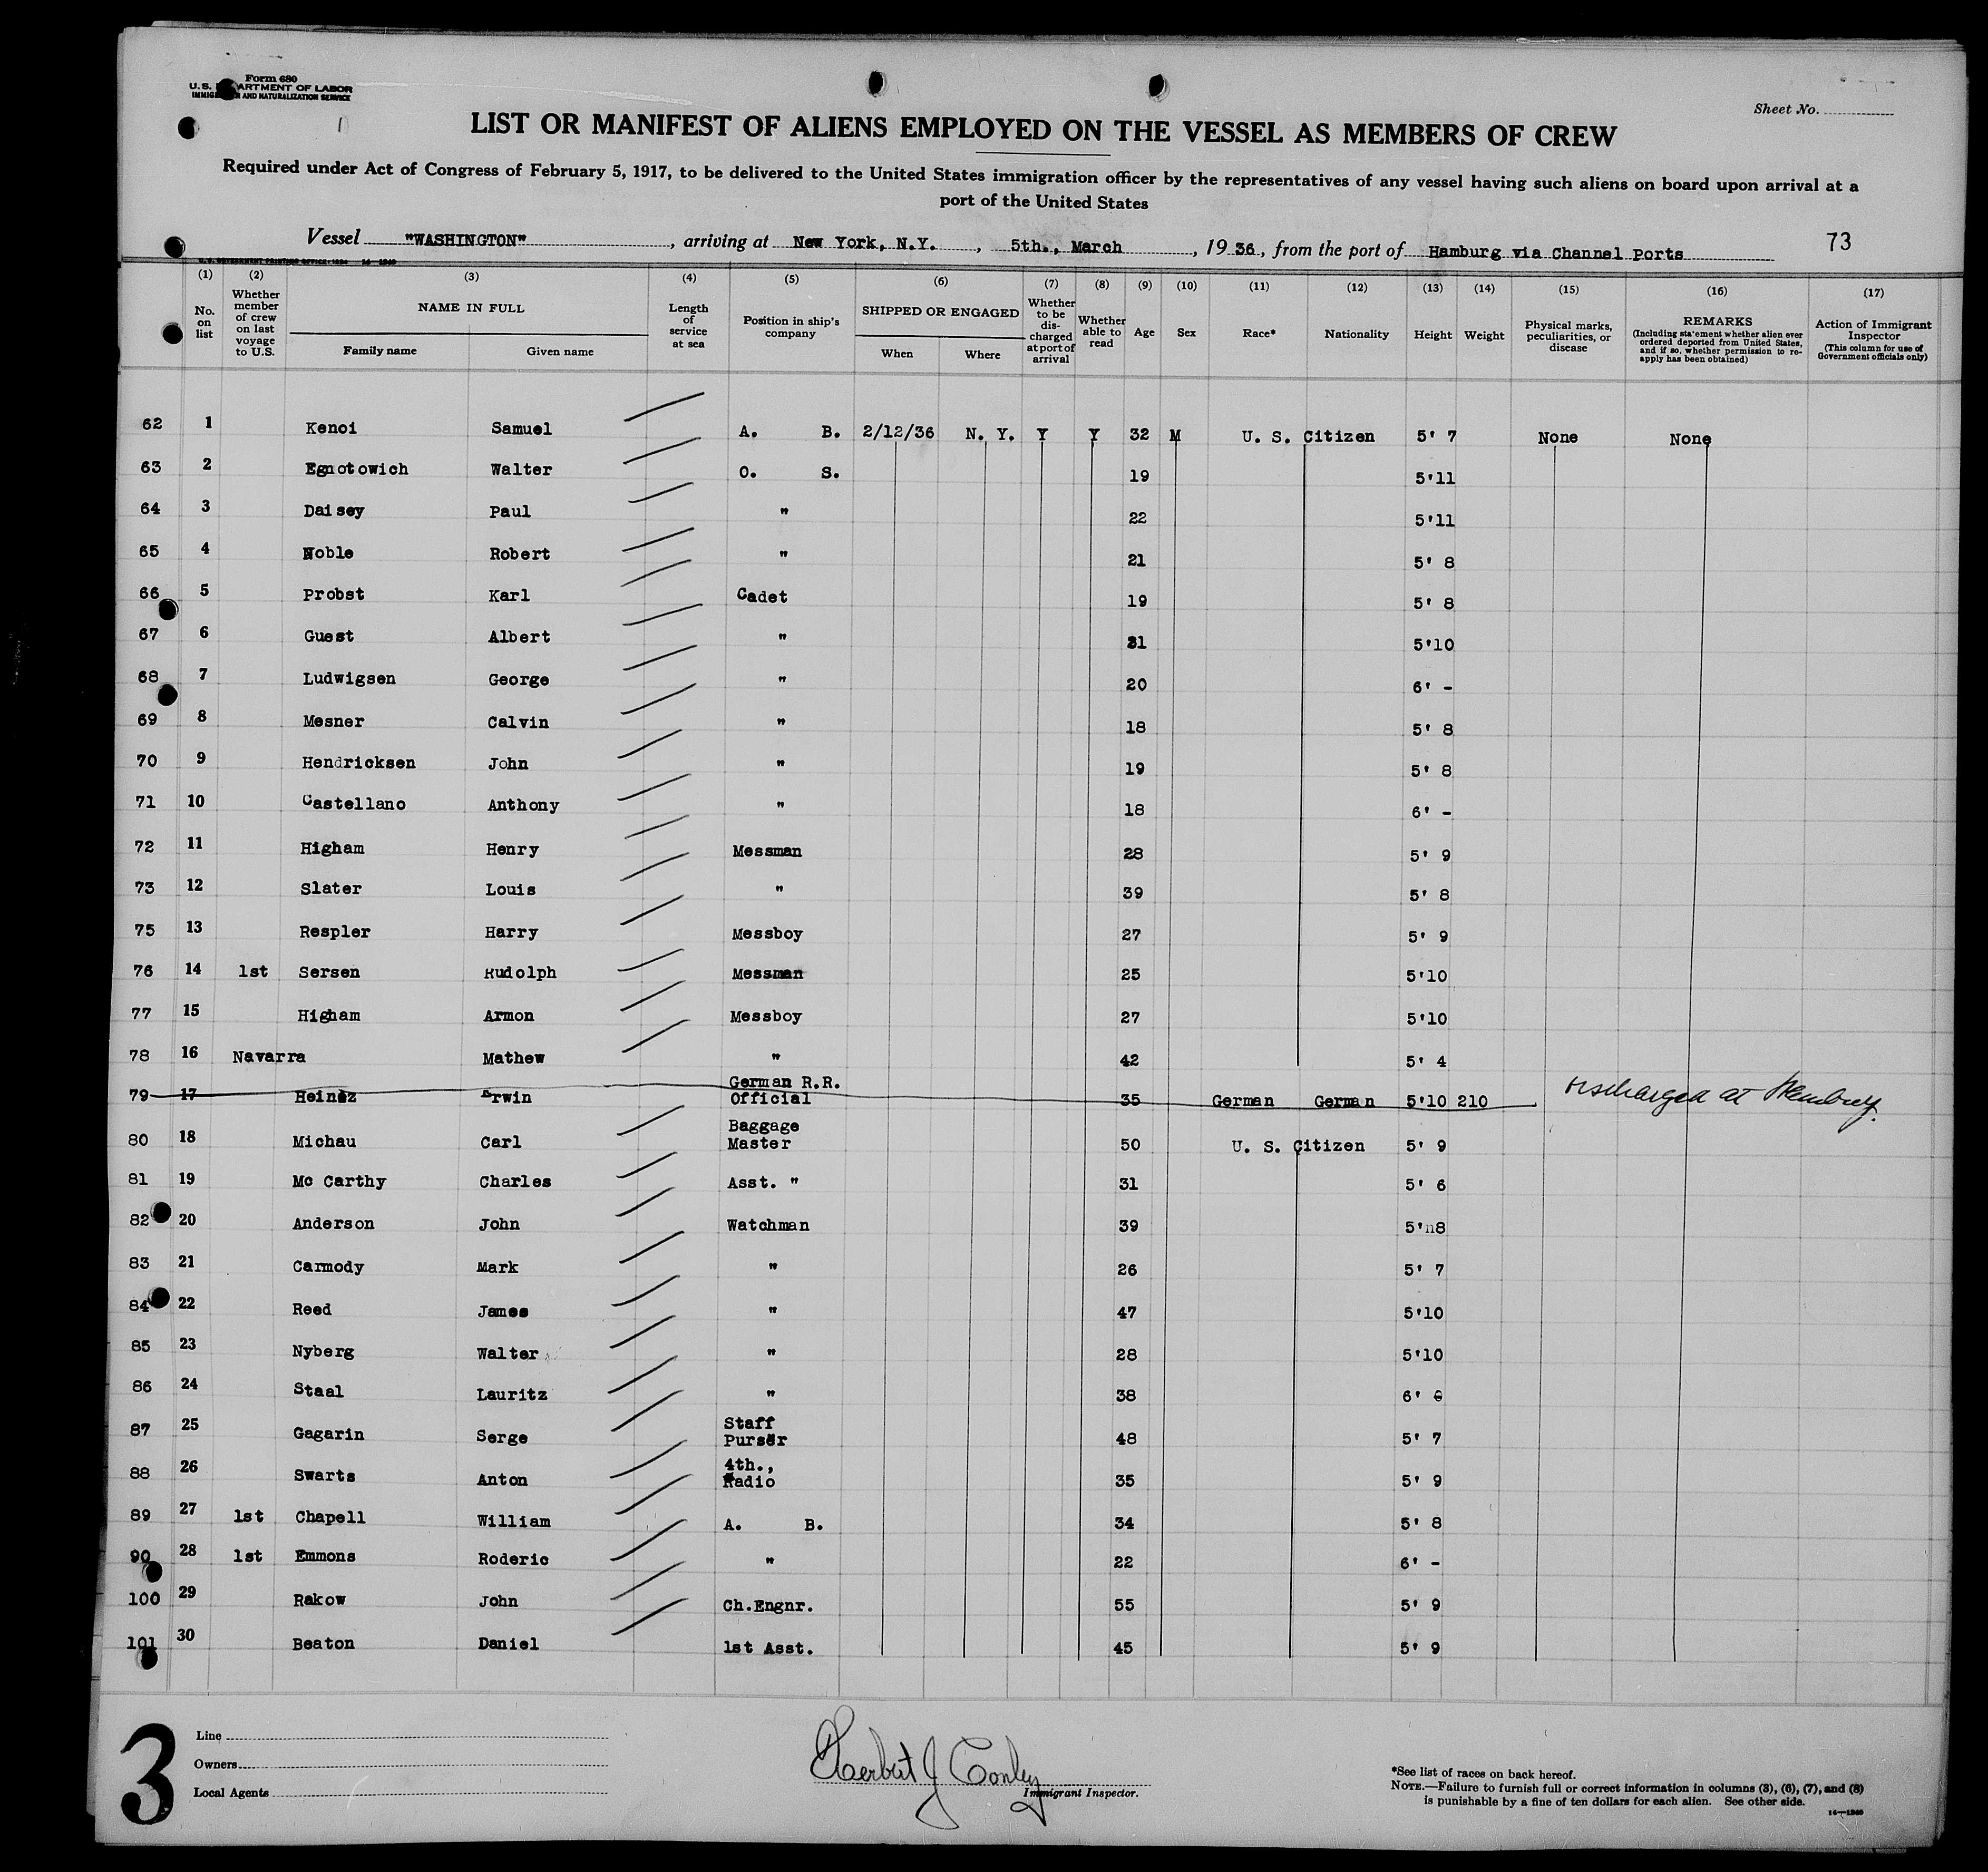 Form 680
U.S. DEPARTMENT OF LABOR
IMMIGRATION AND NATURALIZATION SERVICE
Sheet No.
LIST OR MANIFEST OF ALIENS EMPLOYED ON THE VESSEL AS MEMBERS OF CREW
Required under Act of Congress of February 5, 1917, to be delivered to the United States immigration officer by the representatives of any vessel having such aliens on board upon arrival at a
port of the United States
Vessel "WASHINGTON", arriving at New York, N.Y., 5th., March, 1936, from the port of Hamburg via Channel Ports 73
(1) (2) (3) (4) (5) (6) (7) (8) (9) (10) (11) (12) (13) (14) (15) (16) (17)
No. on list Whether member of crew on last voyage to U.S. NAME IN FULL Family name Given name Length of service at sea Position in ship's company SHIPPED OR ENGAGED When Where Whether to be discharged at port of arrival Whether able to read Age Sex Race* Nationality Height Weight Physical marks, peculiarities, or disease REMARKS (Including statement whether alien ever ordered deported from United States, and if so, whether permission to re-apply has been obtained) Action of Immigrant Inspector (This column for use of Government officials only)
62 1 Kenoi Samuel A. B. 2/12/36 N. Y. Y Y 32 M U. S. Citizen 5' 7 None None
63 2 Egnotowich Walter O. S. 19 5'11
64 3 Daisey Paul " 22 5'11
65 4 Noble Robert " 21 5' 8
66 5 Probst Karl Cadet 19 5' 8
67 6 Guest Albert " 21 5'10
68 7 Ludwigsen George " 20 6' -
69 8 Mesner Calvin " 18 5' 8
70 9 Hendricksen John " 19 5' 8
71 10 Castellano Anthony " 18 6' -
72 11 Higham Henry Messman 28 5' 9
73 12 Slater Louis " 39 5' 8
75 13 Respler Harry Messboy 27 5' 9
76 14 1st Sersen Rudolph Messman 25 5'10
77 15 Higham Armon Messboy 27 5'10
78 16 Navarra Mathew " 42 5' 4
79 17 Heinez Erwin German R.R. Official 35 German German 5'10 210 Discharged at Hamburg.
80 18 Michau Carl Baggage Master 50 U. S. Citizen 5' 9
81 19 Mc Carthy Charles Asst. " 31 5' 6
82 20 Anderson John Watchman 39 5' 8
83 21 Carmody Mark " 26 5' 7
84 22 Reed James " 47 5'10
85 23 Nyberg Walter " 28 5'10
86 24 Staal Lauritz " 38 6'
87 25 Gagarin Serge Staff Purser 48 5' 7
88 26 Swarts Anton 4th., Radio 35 5' 9
89 27 1st Chapell William A. B. 34 5' 8
90 28 1st Emmons Roderic " 22 6' -
100 29 Rakow John Ch.Engnr. 55 5' 9
101 30 Beaton Daniel 1st Asst. 45 5' 9
3
Line
Owners
Local Agents
Herbert J Conley
Immigrant Inspector.
*See list of races on back hereof.
NOTE.—Failure to furnish full or correct information in columns (3), (6), (7), and (8)
is punishable by a fine of ten dollars for each alien. See other side.